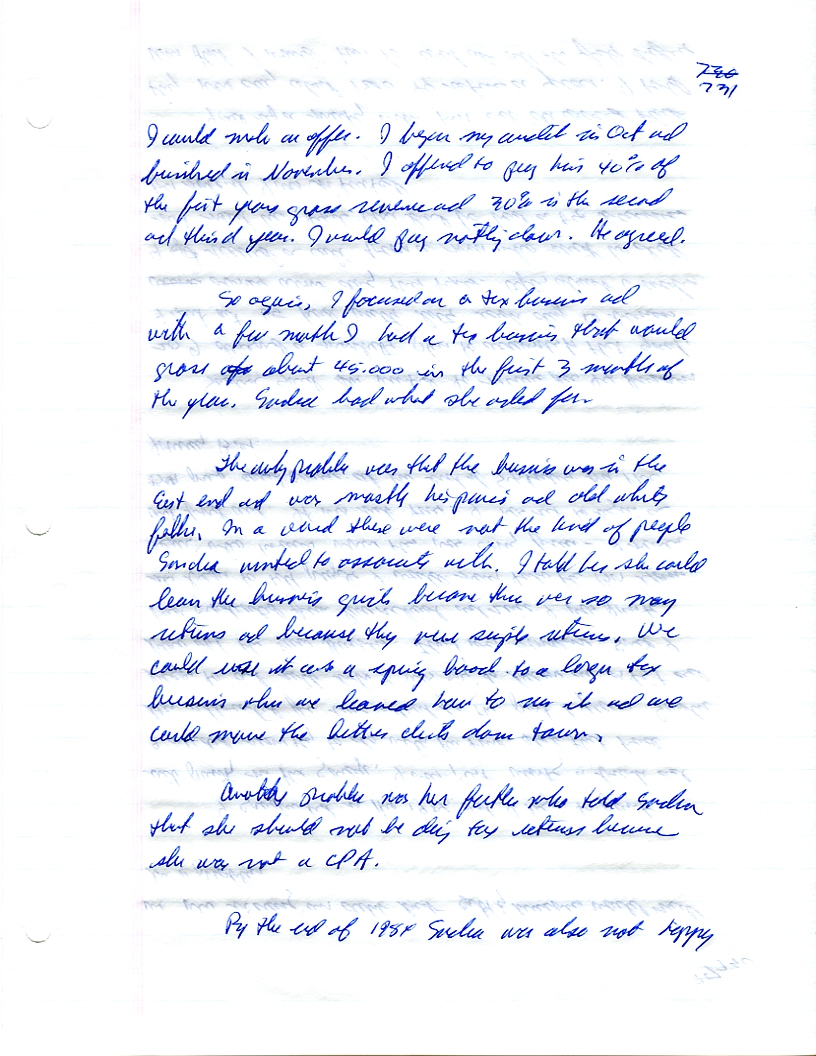 730
731
I could make an offer. I began my audit in Oct and
finished in November. I offered to pay him 40% of
the first years gross revenue and 30% in the second
and third year. I would pay nothing down. He agreed.
So again, I focused on a tax business and
with a few month I had a tax business that would
gross about 45.000 in the first 3 months of
the year. Sandra had what she asked for.
The only problem was that the business was in the
East end and was mostly hispanics and old white
folks. In a word these were not the kind of people
Sandra wanted to associate with. I told her she could
learn the business quick because there were so many
returns and because they were simple returns. We
could use it as a spring board to a larger tax
business when we learned how to run it and we
could move the better clients down town.
Another problem was her father who told Sandra
that she should not be doing tax returns because
she was not a CPA.
By the end of Sandra was also not happy